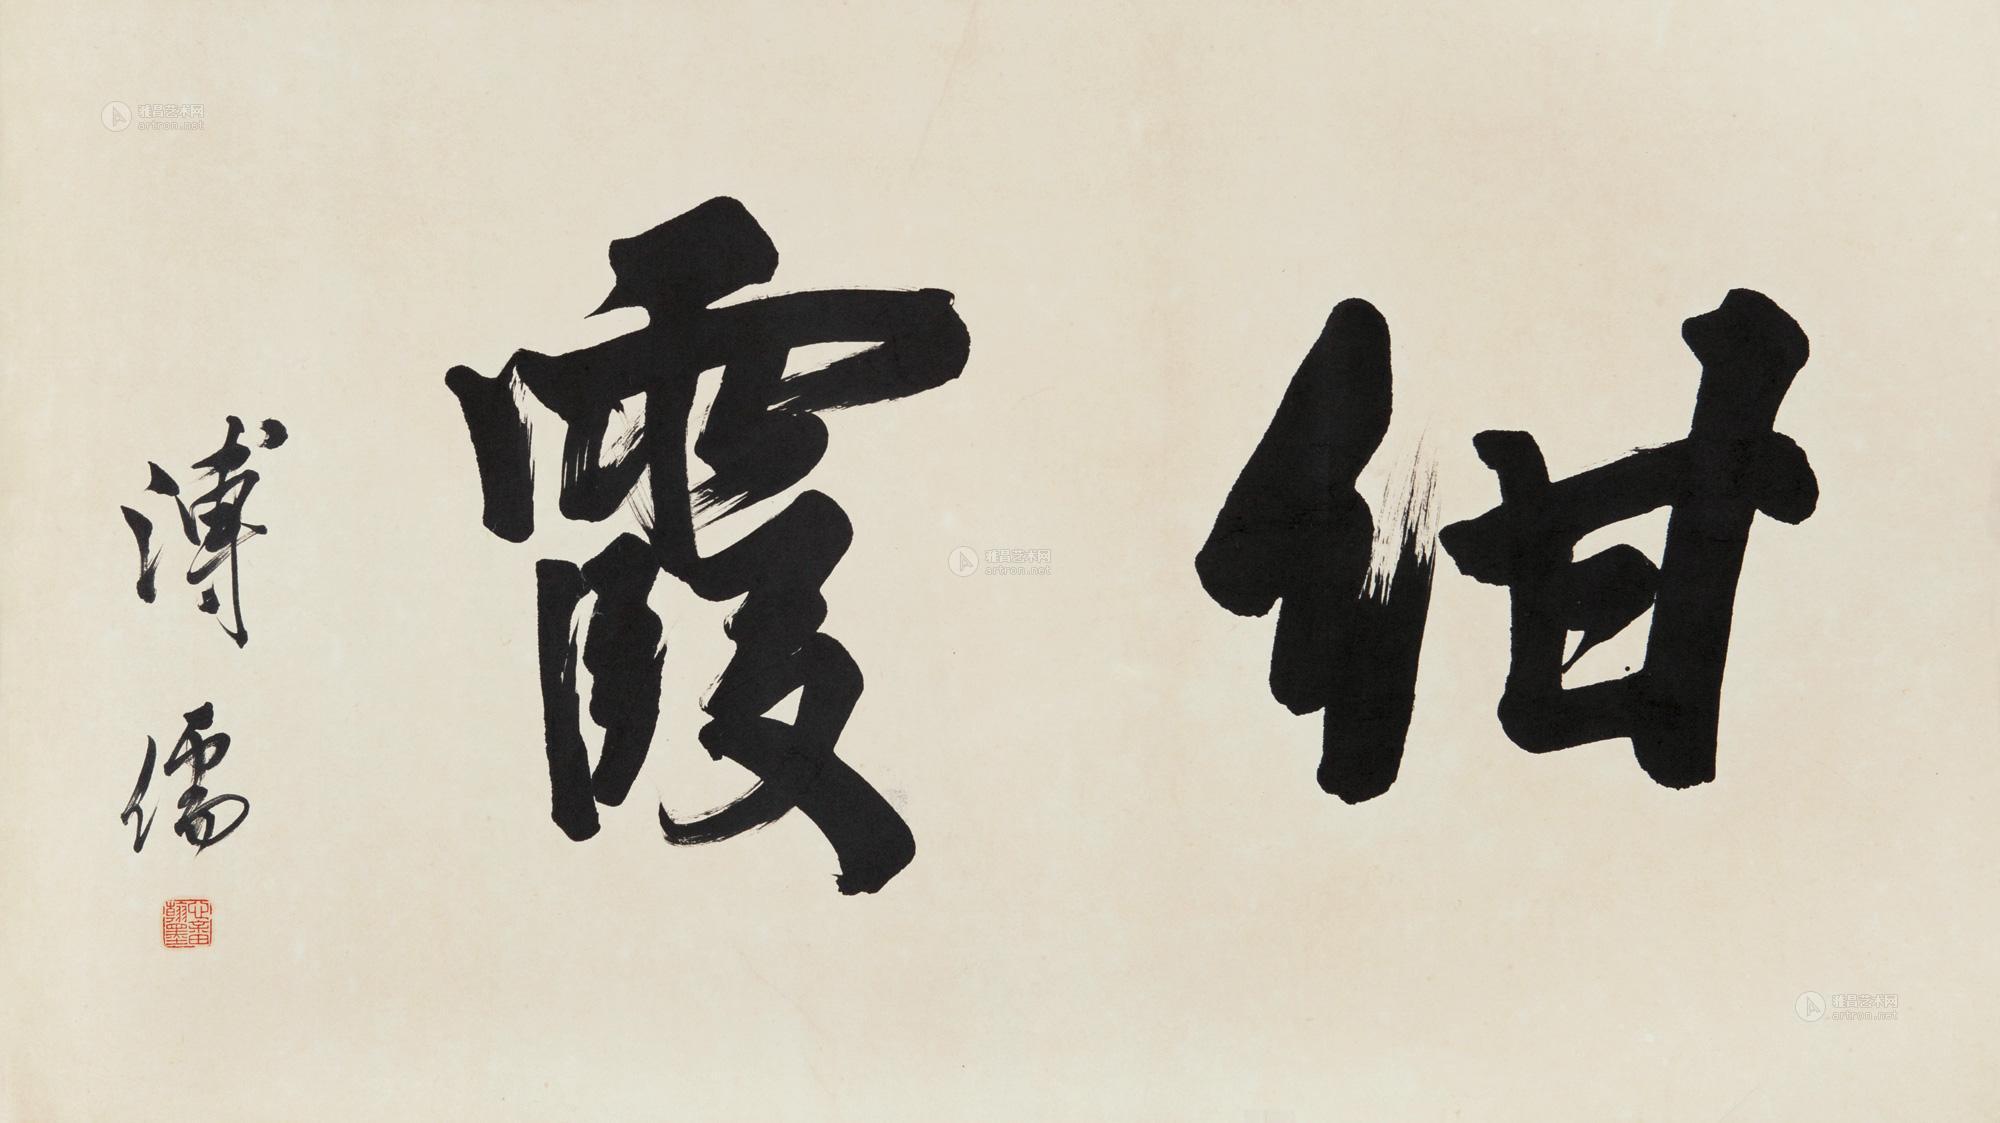 紺霞
溥儒
雅昌艺术网
artron.net
雅昌艺术网
artron.net
雅昌艺术网
artron.net